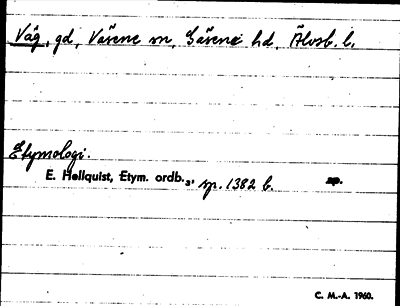 Våg, gd, Vårene sn, Gäsene hd, Älvsb. l.
Etymologi.
E. Hellquist, Etym. ordb.3, sp. 1382 b.
C. M.-A. 1960.